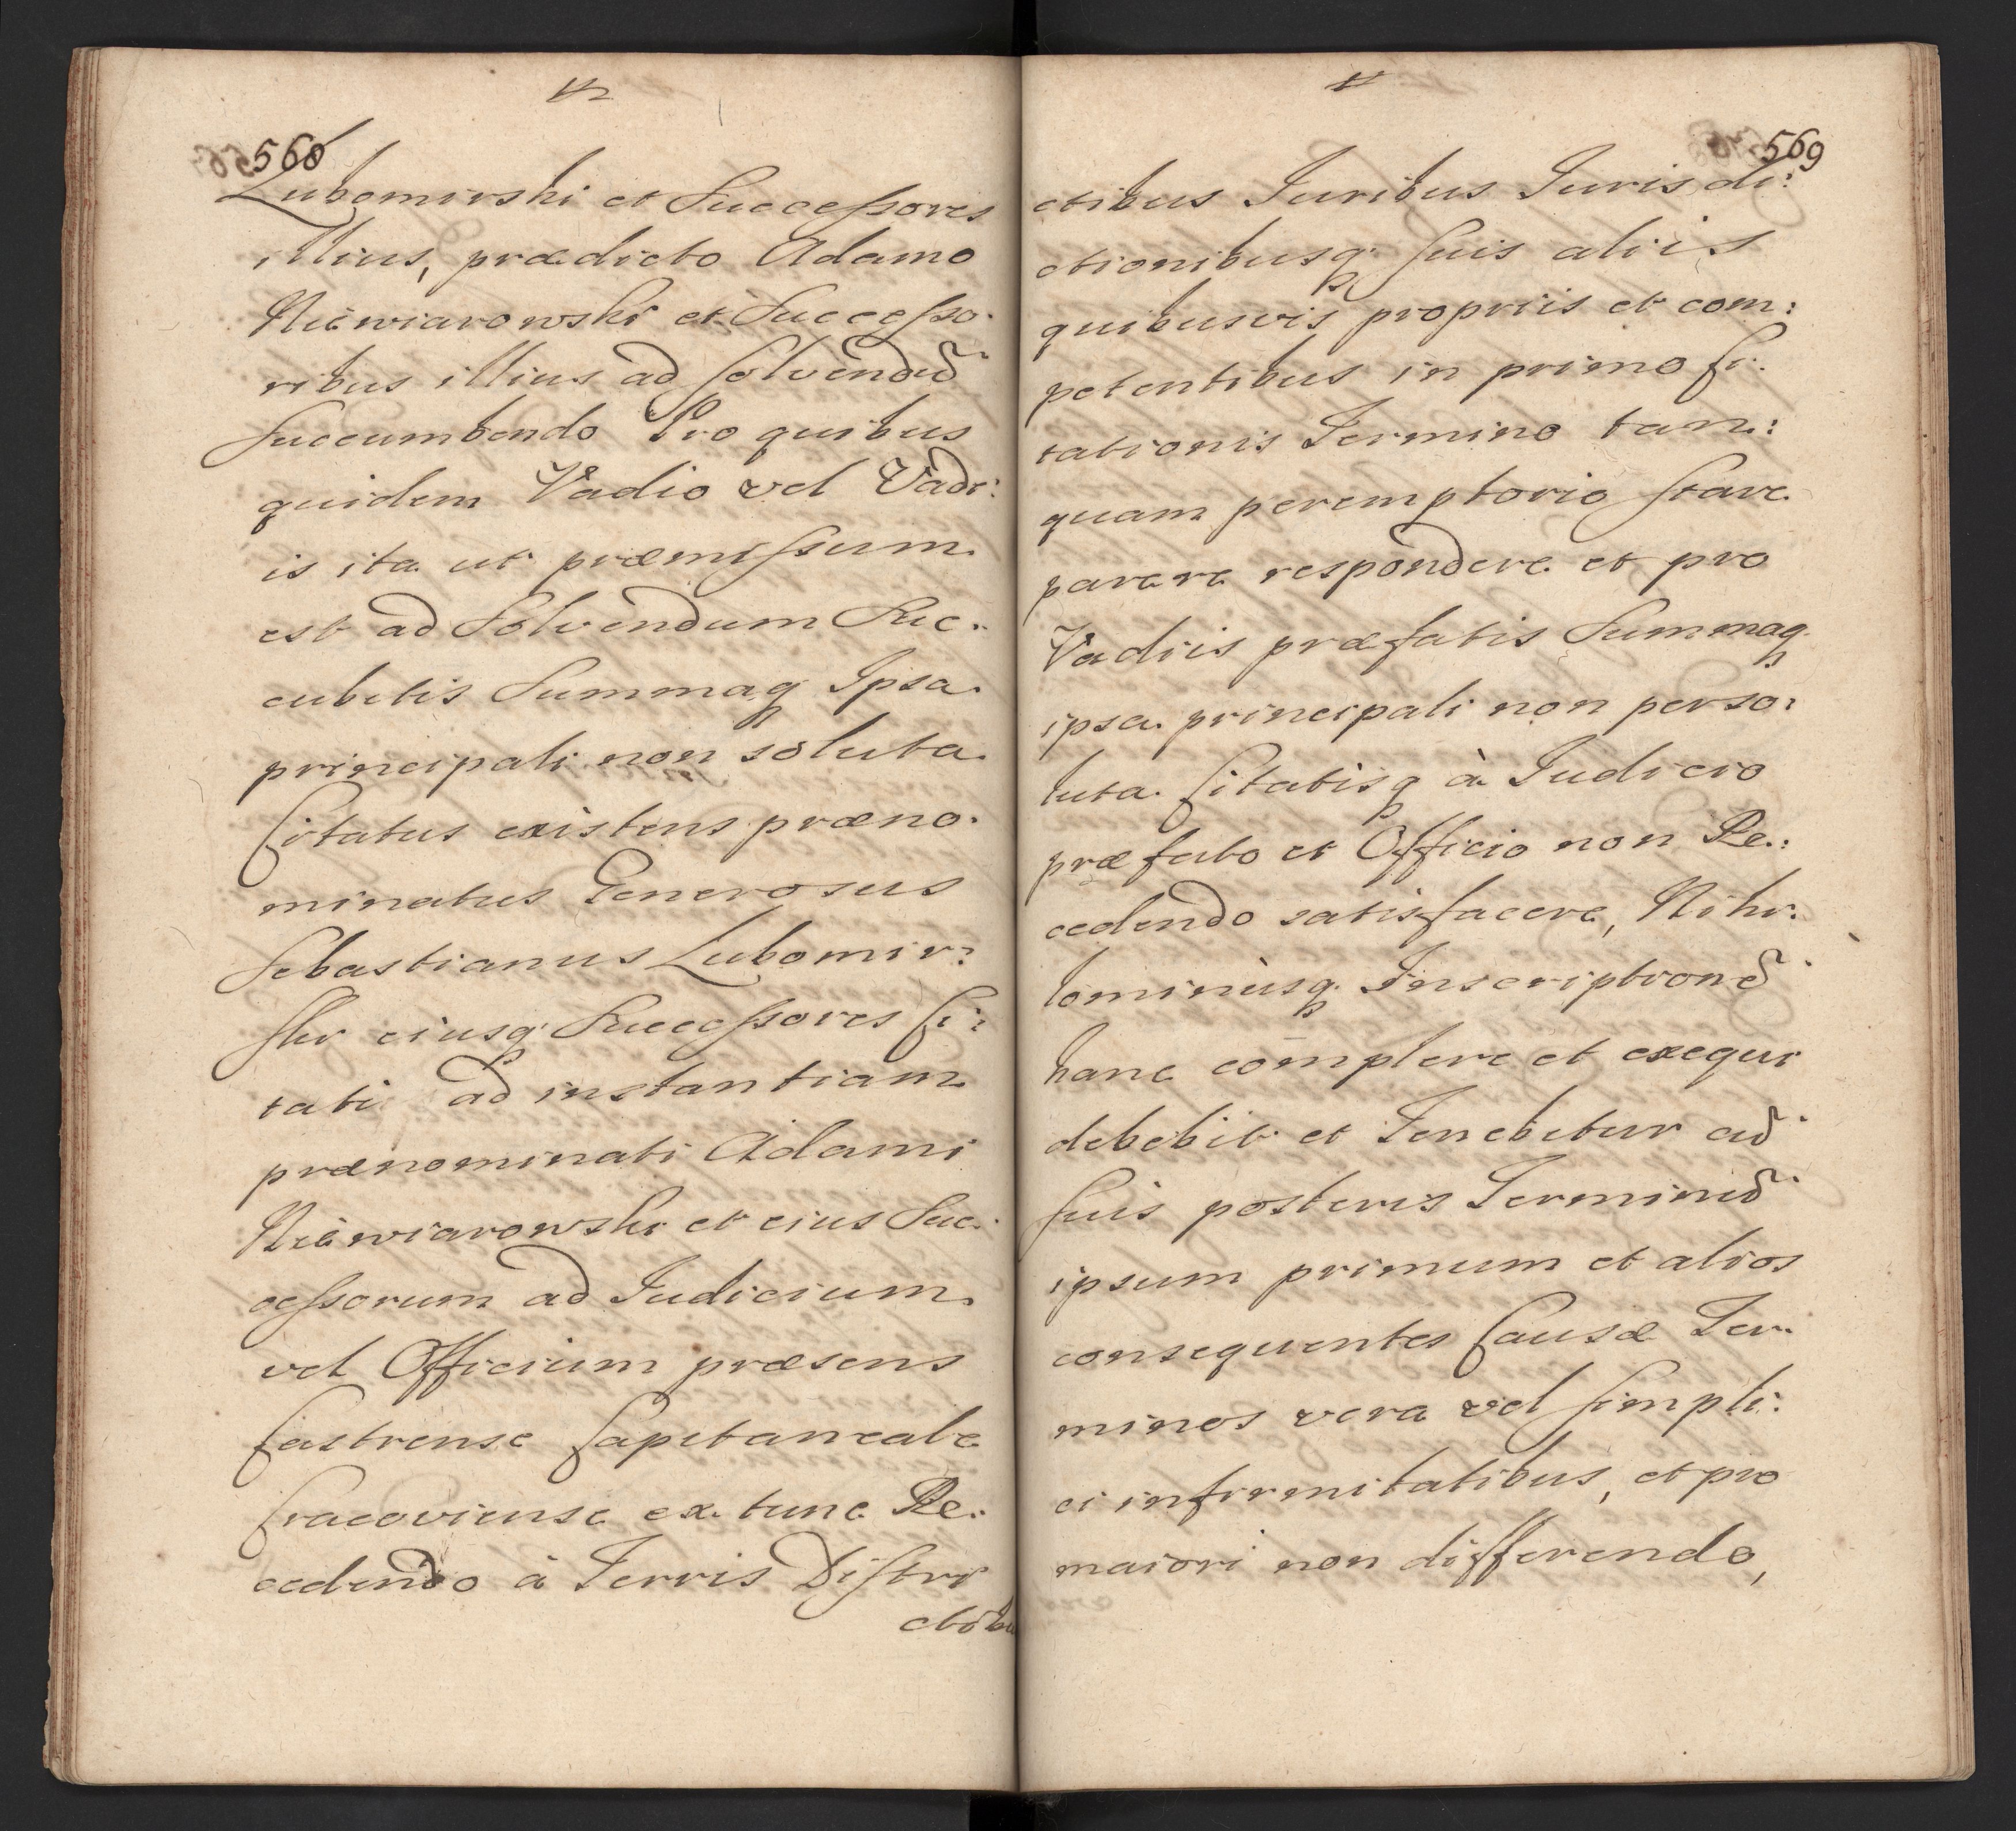 568
Lubomirski et Succeſsores
illius, prædicto Adamo
Niewiarowski et Succeſso:
ribus illius ad ſolvendũ
ſuccumbendo Pro quibus
quidem Vadio vel Vadi:
is ita ut præmiſsum
est ad Solvendum Suc:
cubitis Summaq; Ipsa
principali non soluta
Citatus existens præno:
minatus Generosus
Sebastianus Lubomir:
ſki eiusq; Succeſsores Ci:
tati ad instantiam
prænominati Adami
Niewiarowski et eius Suc:
ceſsorum ad Iudicium
vel Officium præsens
Castrense Capitaneale
Cracoviense ex tunc Re:
cedendo à Terris Diſtri
ctibu
569
ctibus Iuribus Iurisdi:
ctionibusq; ſuis aliis
quibusvis propriis et com:
petentibus in primo Ci:
tationis Termino tan:
quam peremptorio ſtare
parere respondere et pro
Vadiis præfatis Summaq;
ipsa principali non perso:
luta Citatisq; à Iudicio
præfato et Officio non Re:
cedendo satisfacere, Nihi:
lominùsq; Inscriptionẽ
hanc complere et exequi
debebit et Tenebitur ad
ſuis posteris Terminũ
ipsum primum et alios
consequentes Causæ Ter:
minos vera vel ſimpli:
ci infirmitatibus, et pro
maiori non differendo,